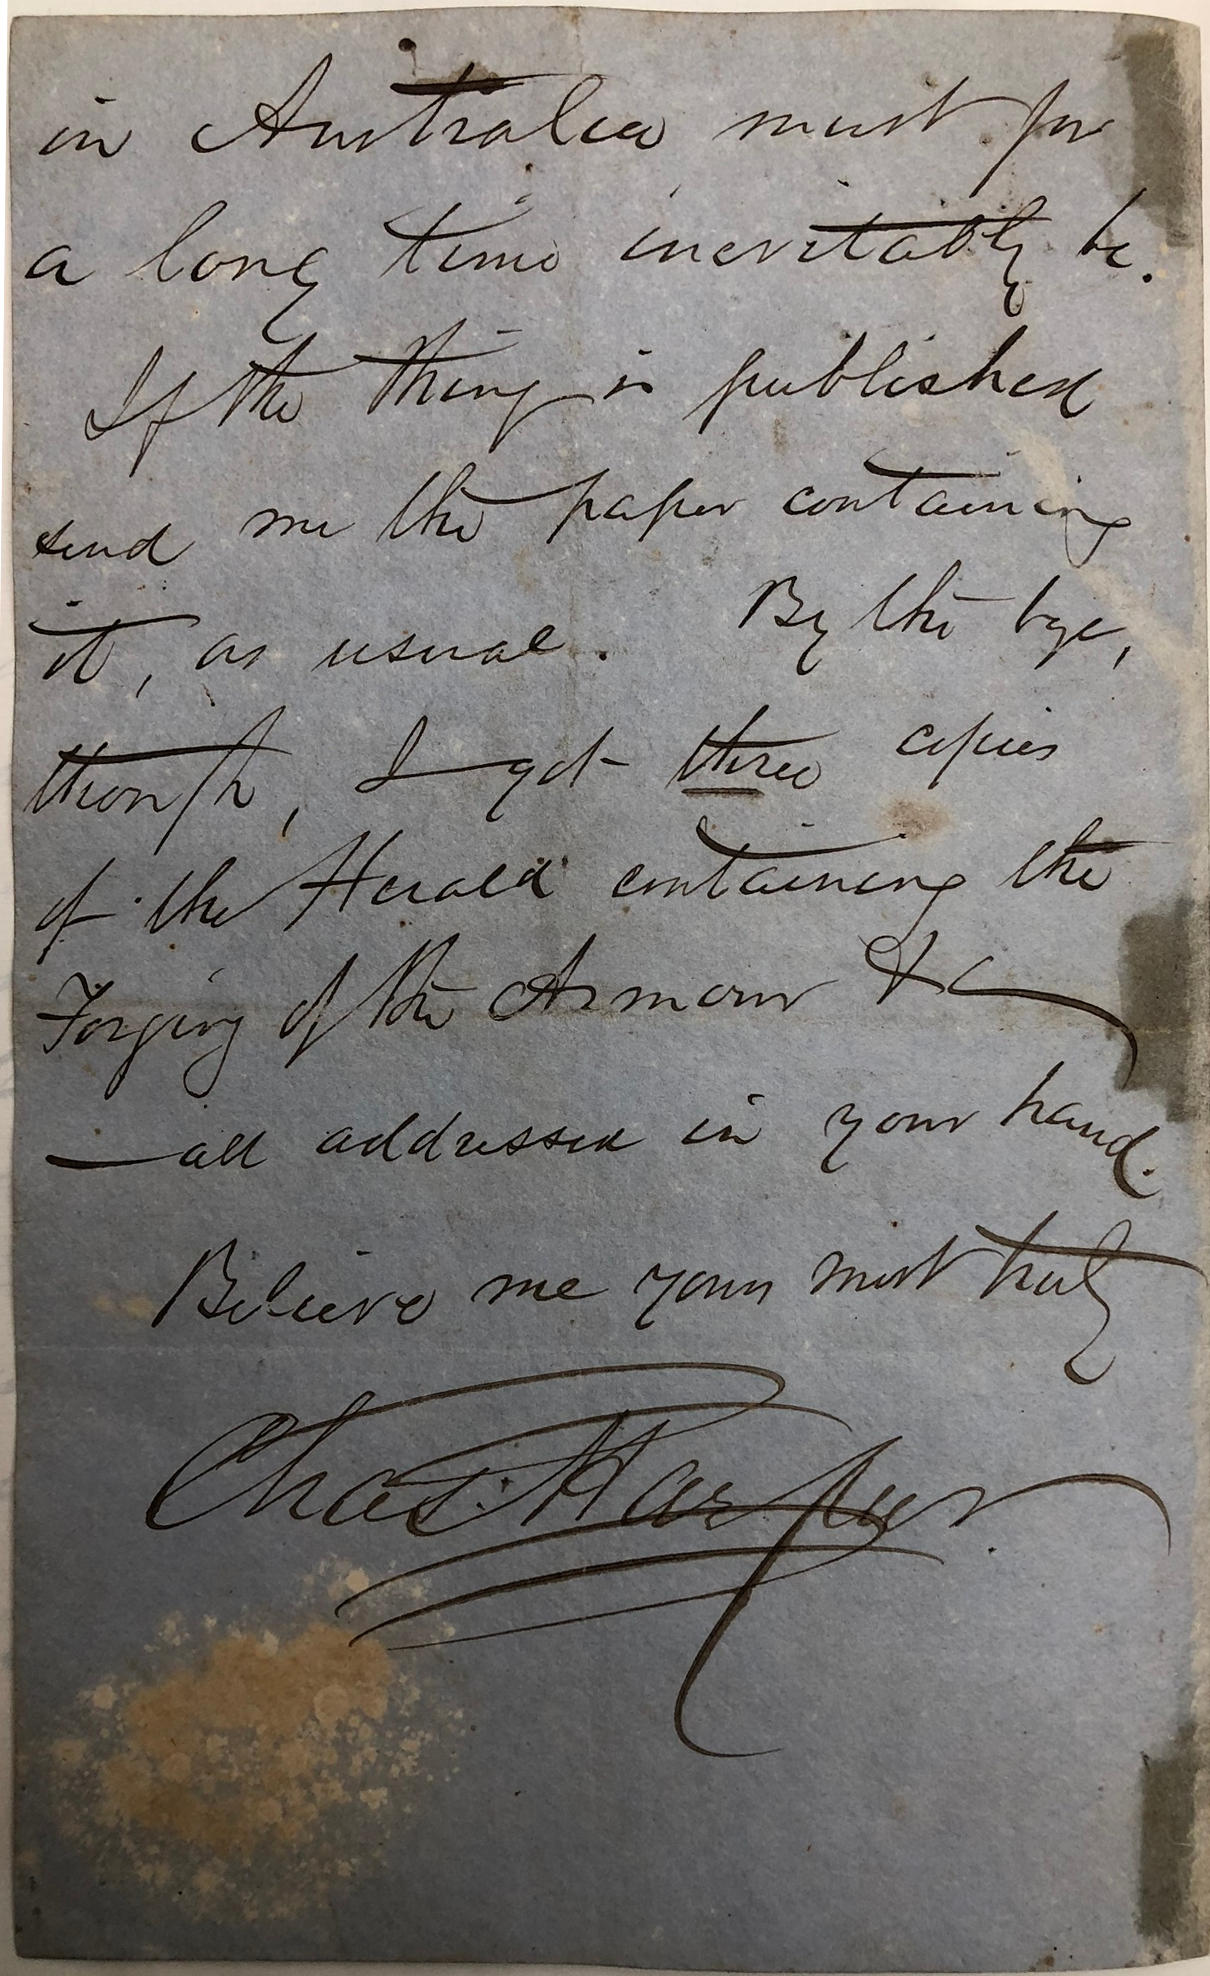 in Australia must for
a long time inevitably be.
If the thing is published
send me the paper containing
it, as usual. By the bye,
though, I got three copies
of the Herald containing the
Forging of the Armour &c
— all addressed in your hand.
Believe me yours most truly
Chas. Harpur.